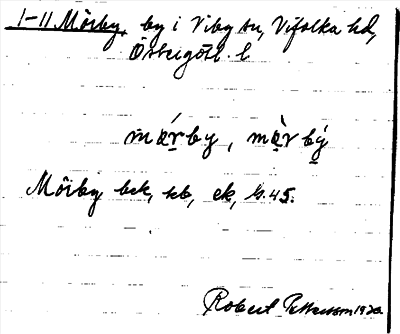 1-11 Mörby, by i Viby sn, Vifolka hd,
Östergötl. l.
márby, màrbý
Mörby bek, kb, ek, s. 45.
Robert Pettersson 1920.